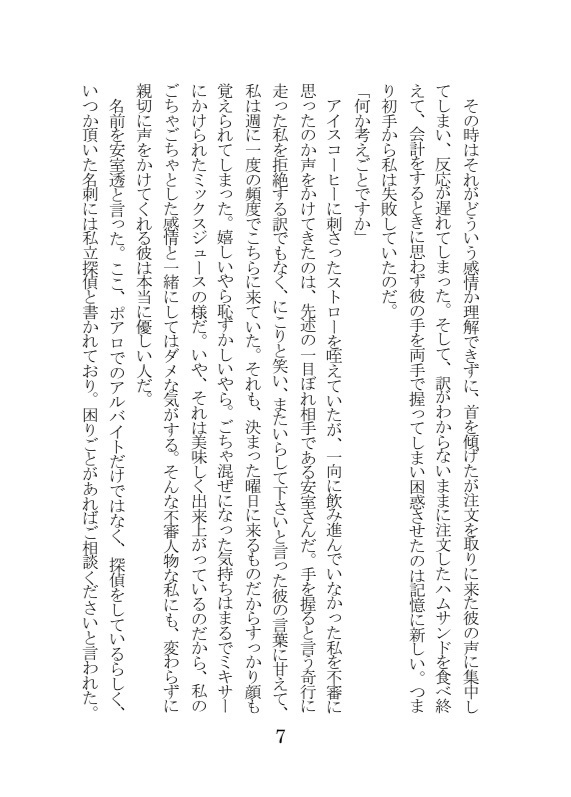 その時はそれがどういう感情か理解できずに、首を傾げたが注文を取りに来た彼の声に集中し
てしまい、反応が遅れてしまった。そして、訳がわからないままに注文したハムサンドを食べ終
えて、会計をするときに思わず彼の手を両手で握ってしまい困惑させたのは記憶に新しい。つま
り初手から私は失敗していたのだ。
「何か考えごとですか」
アイスコーヒーに刺さったストローを咥えていたが、一向に飲み進んでいなかった私を不審に
思ったのか声をかけてきたのは、先述の一目ぼれ相手である安室さんだ。手を握ると言う奇行に
走った私を拒絶する訳でもなく、にこりと笑い、またいらして下さいと言った彼の言葉に甘えて、
私は週に一度の頻度でこちらに来ていた。それも、決まった曜日に来るものだからすっかり顔も
覚えられてしまった。嬉しいやら恥ずかしいやら。ごちゃ混ぜになった気持ちはまるでミキサー
にかけられたミックスジュースの様だ。いや、それは美味しく出来上がっているのだから、私の
ごちゃごちゃとした感情と一緒にしてはダメな気がする。そんな不審人物な私にも、変わらずに
親切に声をかけてくれる彼は本当に優しい人だ。
名前を安室透と言った。ここ、ポアロでのアルバイトだけではなく、探偵をしているらしく、
いつか頂いた名刺には私立探偵と書かれており。困りごとがあればご相談くださいと言われた。
7